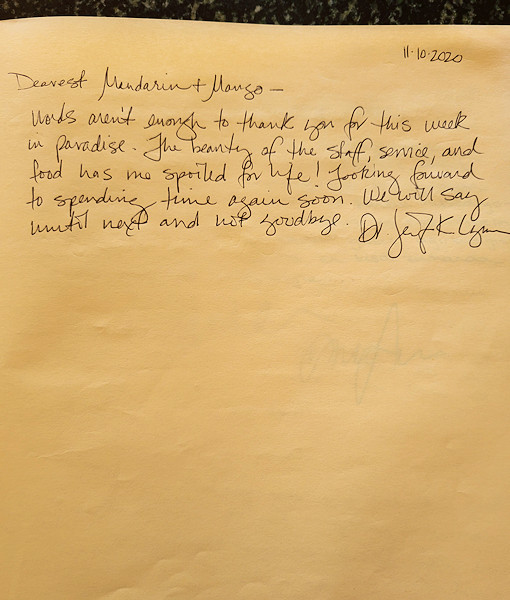 11·10·2020
Dearest Mandarin + Mango —
Words aren't enough to thank you for this week
in paradise. The beauty of the staff, service, and
food has me spoiled for life! Looking forward
to spending time again soon. We will say
until next and not goodbye. Dr. K. Lynn